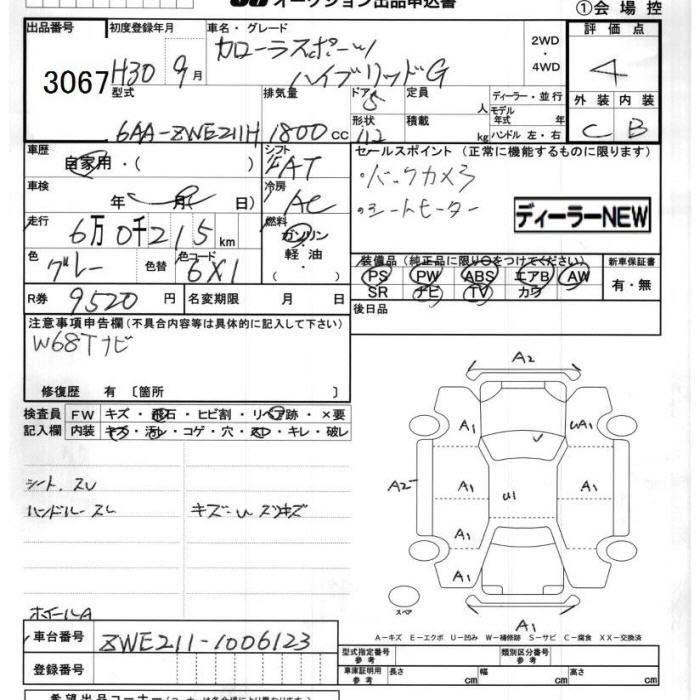 オークション出品申込書
①会場控
出品番号
3067
初度登録年月
H30 9月
車名・グレード
カローラスポーツ
ハイブリッドG
2WD
・
4WD
評価点
4
外装 内装
C B
型式
6AA-ZWE211H
排気量
1800cc
ドア
5
形状
112
定員
人
積載
kg
ディーラー・並行
モデル
年式 年
ハンドル 左・右
車歴
自家用・( )
シフト
FAT
セールスポイント(正常に機能するものに限ります)
・バックカメラ
・シートヒーター
ディーラーNEW
車検
年 月 日)
冷房
AC
走行
6万0千215km
燃料
ガソリン
・
軽油
( )
色
グレー
色替
色コード
6X1
装備品(純正品に限り○をつけてください)
PS PW ABS エアB AW
SR ナビ TV カワ
新車保証書
有・無
R券 9520円
名変期限 月 日
後日品
注意事項申告欄(不具合内容等は具体的に記入して下さい)
W68Tナビ
修復歴 有〔箇所 〕
検査員
記入欄
FW キズ・飛石・ヒビ割・リペア跡・×要
内装 キズ・汚レ・コゲ・穴・スレ・キレ・破レ
シート、スレ
ハンドルースレ
キズーu スリキズ
ホイールA
A2
A1
uA1
A2
A1
u1
A1
A1
A1
A1
A1
スペア
A1
A―キズ E―エクボ U―凹み W―補修跡 S―サビ C―腐食 XX―交換済
車台番号 ZWE211-1006123
登録番号
型式指定番号
参考
類別区分番号
参考
車庫証明用
参考
長さ cm 幅 cm 高さ cm
希望出品コーナー